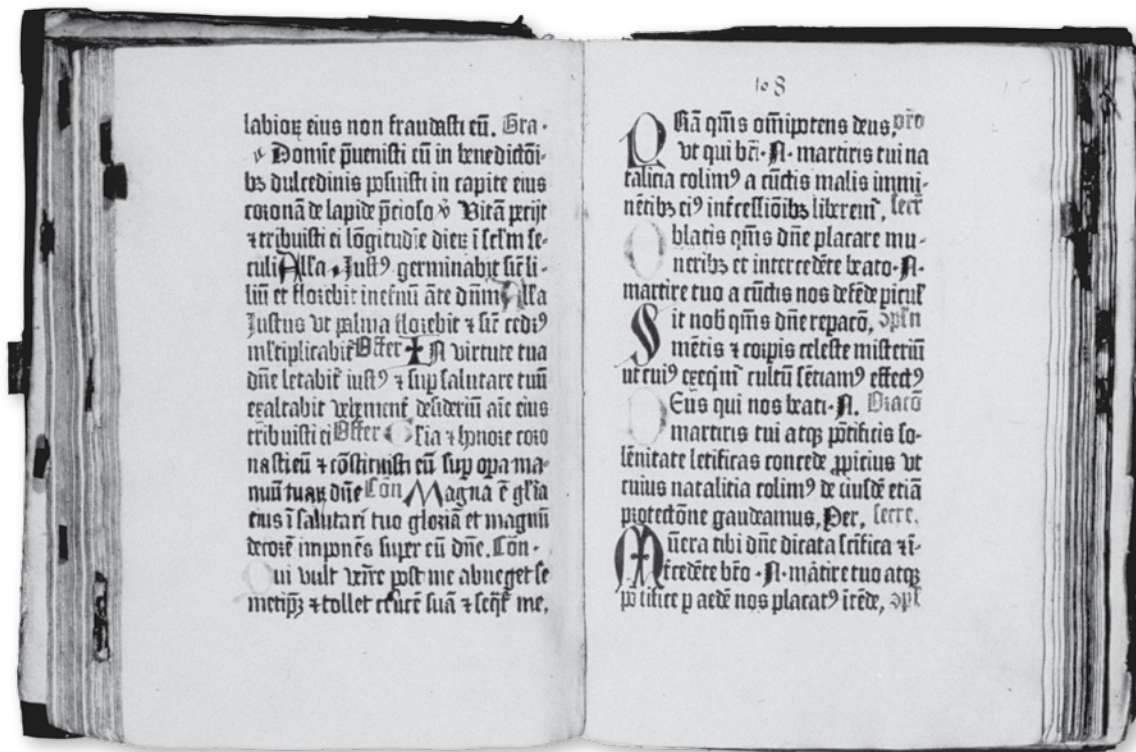 labioꝝ eius non fraudasti eū. Gra.
Domīe p̄uenisti eū in benedictōi-
bꝫ dulcedinis posuisti in capite eius
coronā de lapide p̄cioso ꝟ Vitā petijt
⁊ tribuisti ei lōgitudīe dieꝝ ī scl̄m se-
culi All̃a Justꝰ germinabit sic̃ li-
liū et florebit inet̃nū āte dn̄m All̃a
Justus vt palma florebit ⁊ sic̃ cedrꝰ
ml̃tiplicabit᷑ Offer IN virtute tua
dn̄e letabit᷑ iustꝰ ⁊ sup̱ salutare tuū
exaltabit vehement̃ desideriū aīe eius
tribuisti ei Offer Gl̃ia ⁊ honore coro
nasti eū ⁊ cōstituisti eū sup̱ opa ma-
nuū tuaꝝ dn̄e Cōn Magna ē gl̃ia
eius ī salutari tuo gloriā et magnū
decorē imponēs super eū dn̄e. Cōn.
Qui vult venĩre post me abneget se
metip̄ꝫ ⁊ tollet crucē suā ⁊ seqt᷑ me,
108
PRẽa qm̄s om̄ipotens deus, oro
vt qui bt̃i·N· martiris tui na
talicia colimꝰ a cūctis malis immi-
nētibꝫ eiꝰ int̃cessiōibꝫ liberem᷑, secr̃
Oblatis qm̄s dn̄e placare mu-
neribꝫ et intercedēte beato·N·
martire tuo a cūctis nos defēde picul̃
Sit nob̃ qm̄s dn̄e reparcō, ꝯpl̃n
mētis ⁊ corpis celeste misteriū
ut cuiꝰ exeqim᷑ cultū sētiamꝰ effectꝰ
Deus qui nos beati·N. Oracō
martiris tui atqꝫ pōtificis so-
lēnitate letificas concede ꝓpicius vt
cuius natalitia colimꝰ de eiusdē etiā
protectōne gaudeamus, Per, secre.
Munera tibi dn̄e dicata sc̄ifica ⁊ ī-
t̃cedēte bt̃o·N·mãtire tuo atqꝫ
pōtifice p̱ aedē nos placatꝰ ītēde, ꝯpl̃